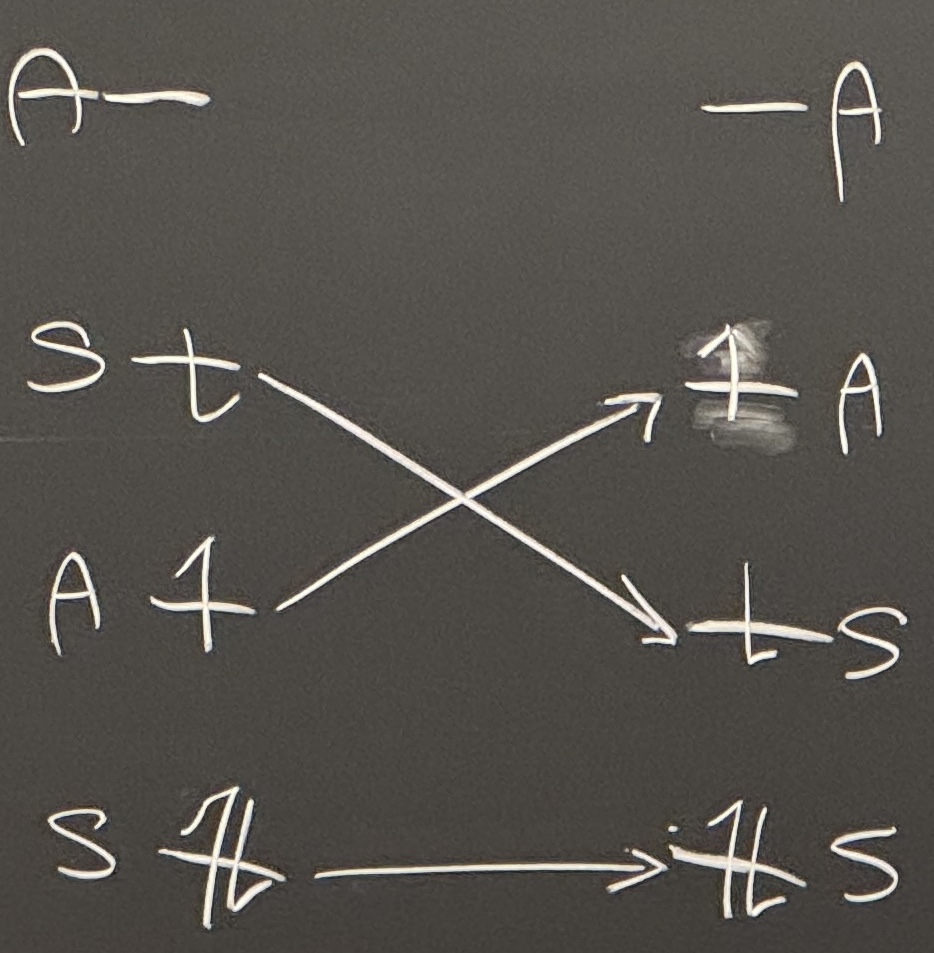 A A
S A
A S
S S